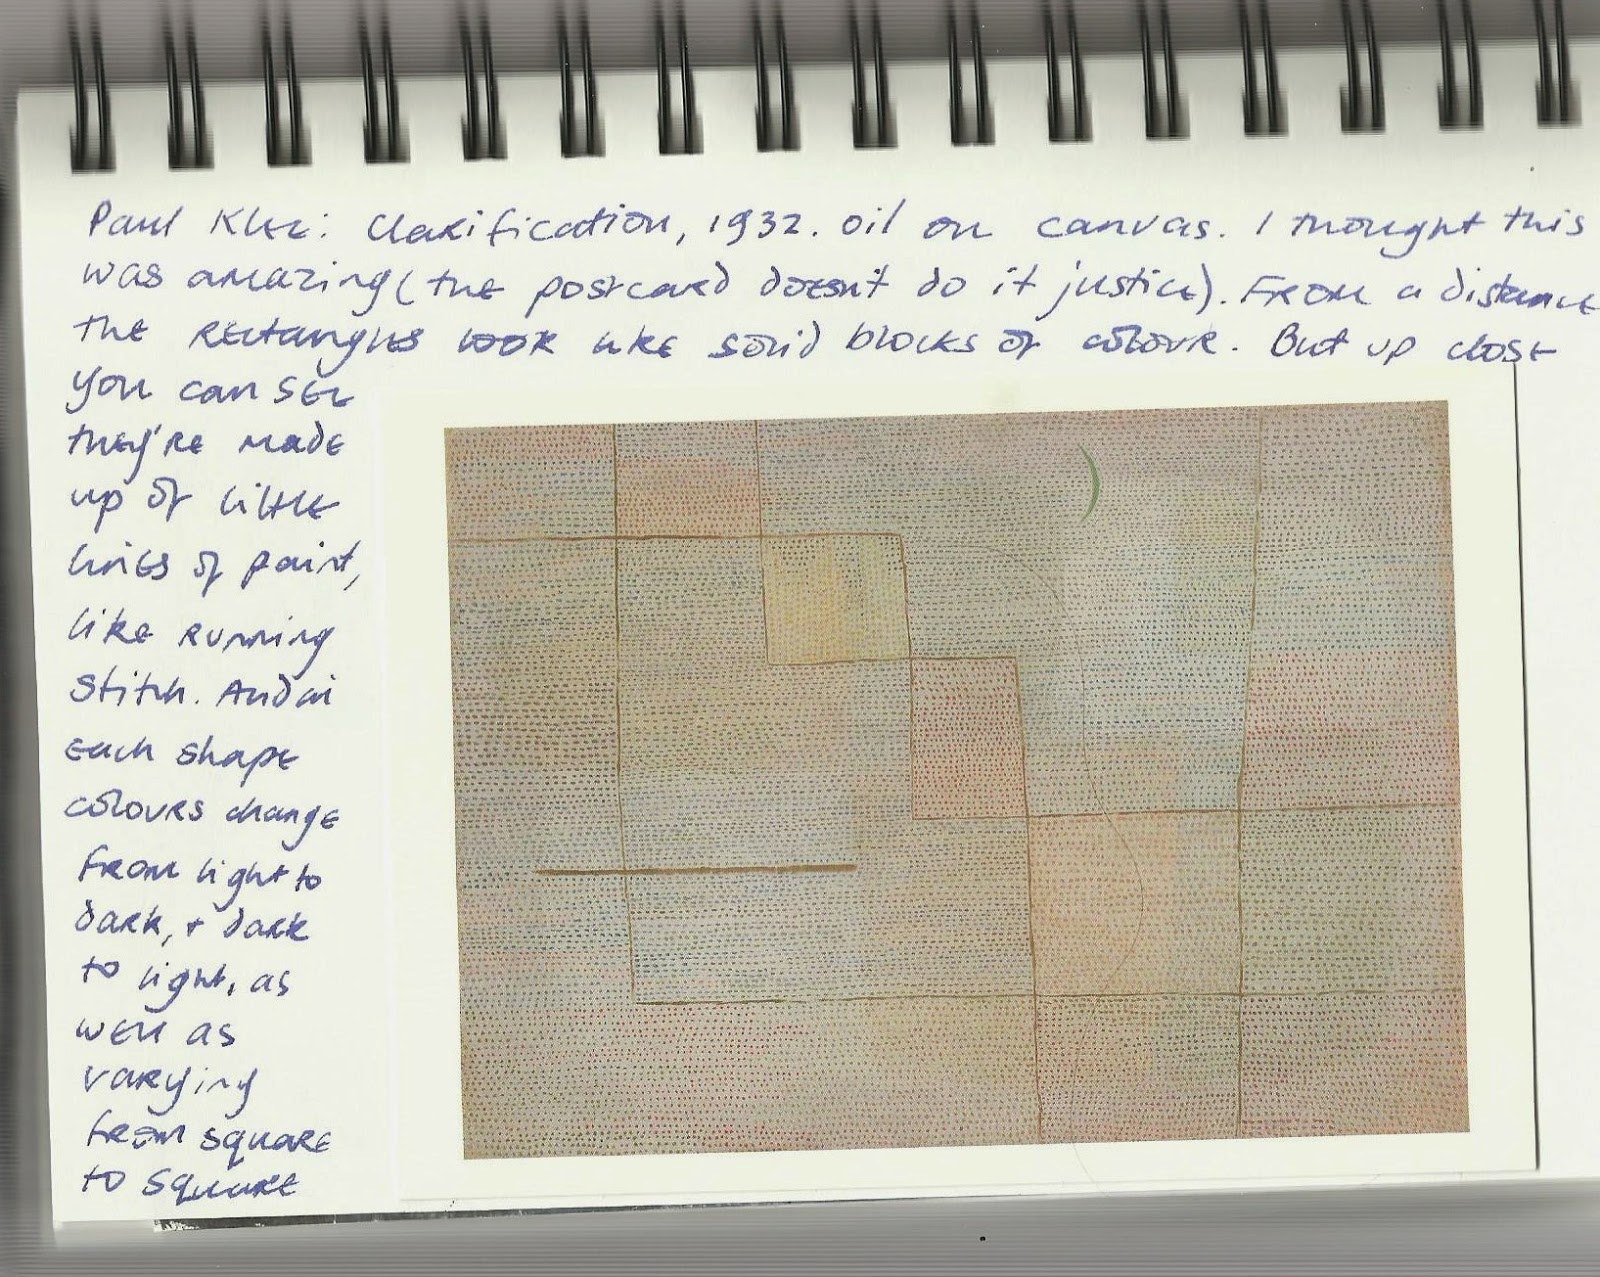 Paul Klee: Clarification, 1932. oil on canvas. I thought this
was amazing (the postcard doesn't do it justice). From a distance
the rectangles look like solid blocks of colour. But up close
you can see
they're made
up of little
lines of paint,
like running
stitch. And in
each shape
colours change
from light to
dark, + dark
to light, as
well as
varying
from square
to square